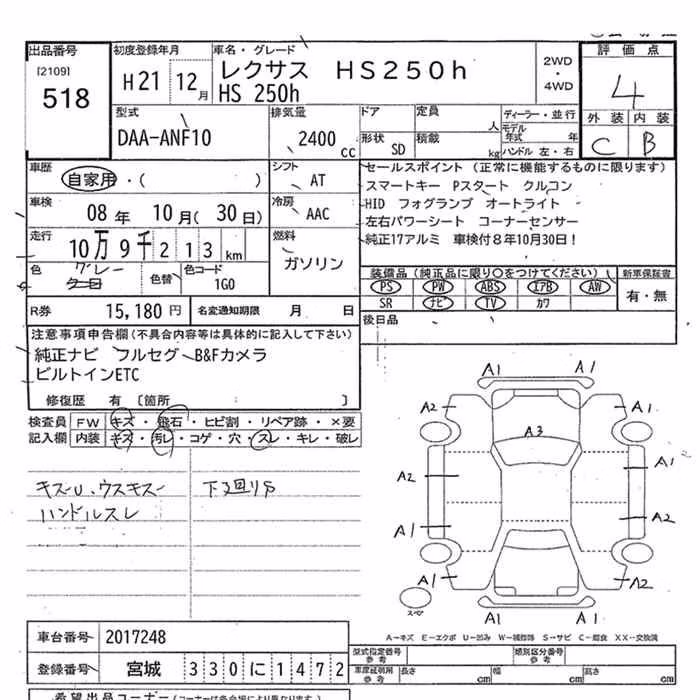 出品番号
[2109]
518
初度登録年月
H21 12月
車名・グレード
レクサス HS250h
HS 250h
2WD
・
4WD
評価点
4
外装 内装
C B
型式
DAA-ANF10
排気量
2400
cc
ドア
形状
SD
定員
人
積載
kg
ディーラー・並行
モデル
年式 年
ハンドル 左・右
車歴
自家用・( )
シフト
AT
車検
08年 10月( 30日)
冷房
AAC
走行
10万9千213km
燃料
ガソリン
色
グレー
色替
色コード
1G0
R券 15,180円
名変通知期限 月 日
セールスポイント (正常に機能するものに限ります)
スマートキー Pスタート クルコン
HID フォグランプ オートライト
左右パワーシート コーナーセンサー
純正17アルミ 車検付8年10月30日!
装備品(純正品に限り○をつけてください)
PS PW ABS エアB AW
SR ナビ TV カワ
新車保証書
有・無
後日品
注意事項申告欄(不具合内容等は具体的に記入して下さい)
純正ナビ フルセグ B&Fカメラ
ビルトインETC
修復歴 有 [箇所 ]
検査員
記入欄
FW キズ・飛石・ヒビ割・リペア跡・×要
内装 キズ・汚レ・コゲ・穴・スレ・キレ・破レ
キズU、ウスキズ
ハンドルスレ
下廻りS
A1 A1
A2 A1
A3
A2 A1
A1 A2
A1 A2
スペア
A1 A1
A−キズ E−エクボ U−凹み W−補修跡 S−サビ C−腐食 XX−交換済
車台番号 2017248
登録番号 宮城 330に1472
型式指定番号
参考
類別区分番号
参考
車庫証明用
参考
長さ 幅 高さ
希望出品コーナー